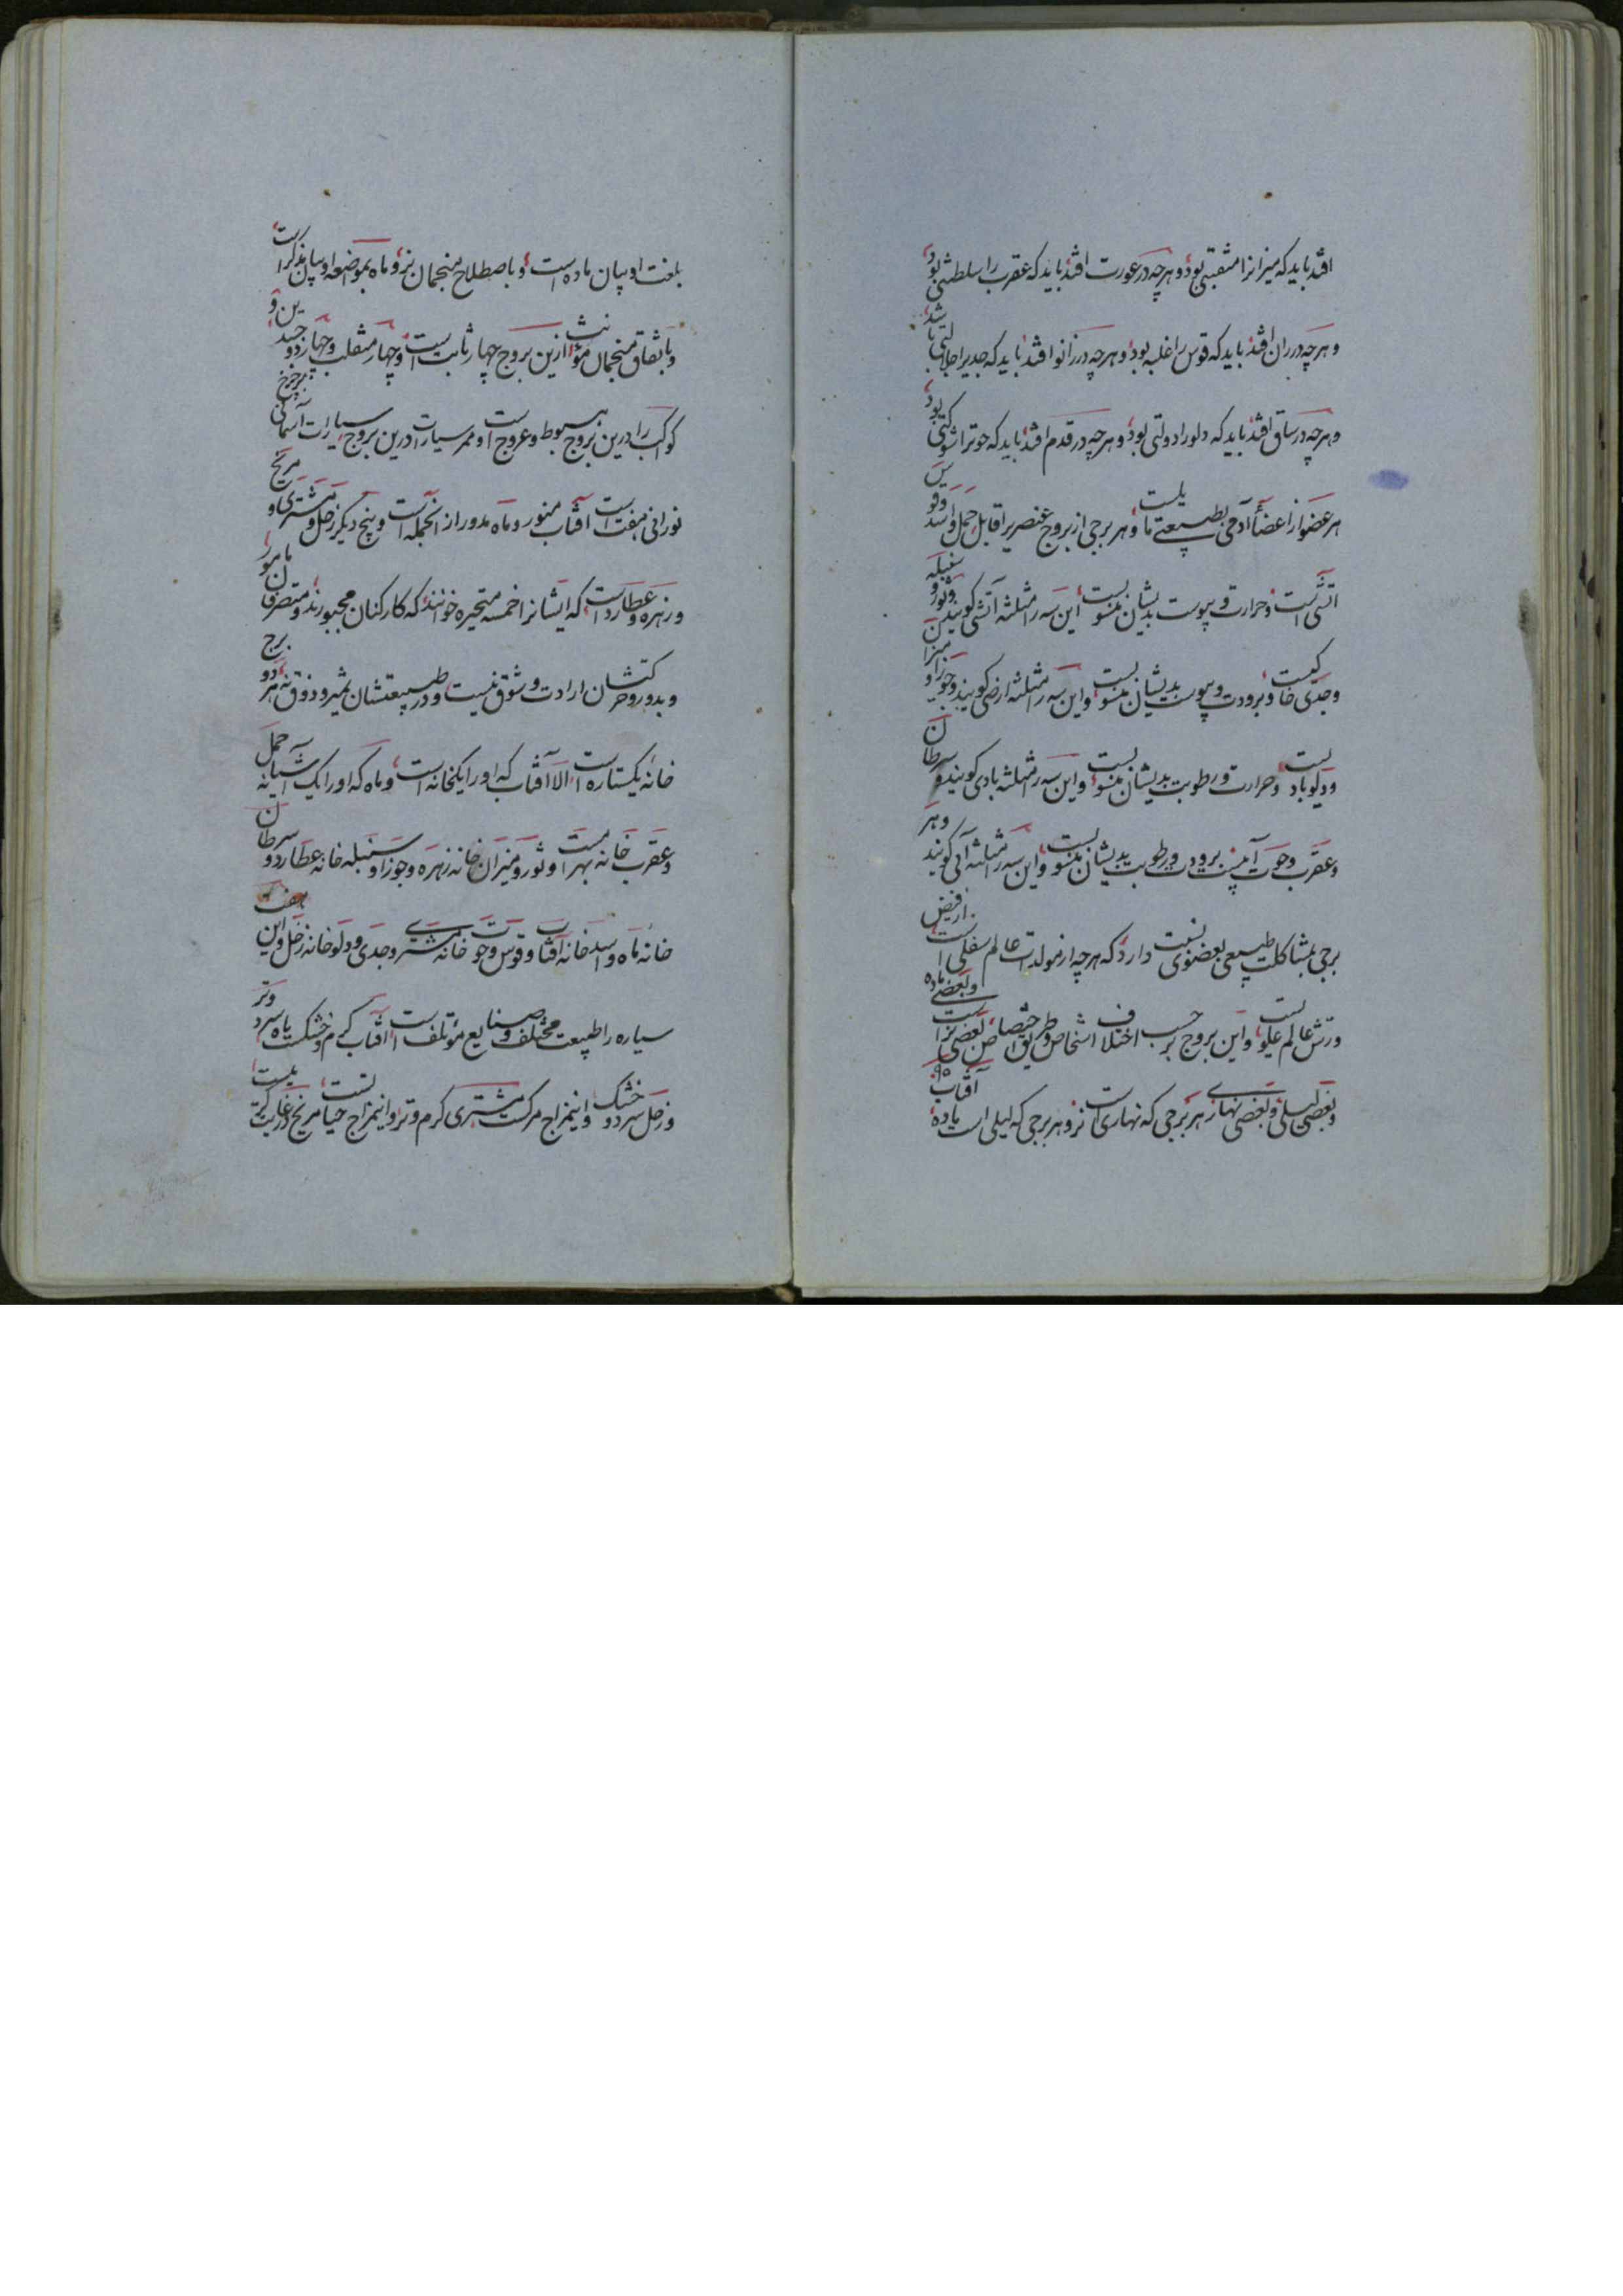 افتد باید که میزانرا منقبتی بود و هر چه در عورت افتد باید که عقرب را سلطنتی بود
و هر چه در ران افتد باید که قوس را غلبه بود و هر چه در زانو افتد باید که جدیرا جلالتی باشد
و هر چه در ساق افتد باید که دلورا دولتی بود و هر چه در قدم افتد باید که حوترا شوکتی بود
هر عضو از اعضاء آدمی بطبیعتی مایلست و هر برجی از بروج عنصریرا قابل حمل و اسد و قوس
آتشی است و حرارت و یبوست بدیشان منسوبست این سه را مثلثه آتشی گویند و ثور و سنبله
و جدی خاکیست و برودت و یبوست بدیشان منسوبست و این سه را مثلثه ارضی گویند و جوزا و میزان
و دلو بادیست و حرارت و رطوبت بدیشان منسوبست و این سه را مثلثه بادی گویند و سرطان
و عقرب و حوت آبیست برودت و رطوبت بدیشان منسوبست و این سه را مثلثه آبی گویند و هر
برجی بمشاکلت طبیعی بعضوی نسبت دارد که هر چه از مولدات عالم سفلی است از فیض
و رشش عالم علویست و این بروج بر حسب اختلاف اشخاص و طریق اختصاص بعضی نر است و بعضی ماده
و بعضی لیلی و بعضی نهاری هر برجی که نهاری است نر و هر برجی که لیلی است ماده آفتاب
بلغت اوپیان ماده است و باصطلاح منجمان نر و ماه بموضعه اوپیان مذکر است
و باتفاق منجمان مؤنث ازین بروج چهار ثابت است و چهار منقلب و چهار ذو جسدین و
کواکب را درین بروج هبوط و عروج است و ممر سیارات درین بروج سیارات آسمانی بر چرخ
نورانی هفت است آفتاب منور و ماه مدور از آنجمله است و پنج دیگر زحل و مشتری و مریخ
و زهره و عطارد است که ایشانرا خمسه متحیره خوانند که کارکنان مجبورند و متصرفان مامور
و بدور و حرکتشان ارادت و شوق نیست و در طبیعتشان تمیز و ذوق نه هر دو برج
خانه یکستاره است الا آفتاب که اورا یکخانه است و ماه که اورا یک آشیانه حمل
و عقرب خانه بهرامست و ثور و میزان خانه زهره و جوزا و سنبله خانه عطارد و سرطان
خانه ماه و اسد خانه آفتاب و قوس و حوت خانه مشتری و جدی و دلو خانه زحل و این هفت
سیاره را طبیعت مختلف و صنایع مؤتلف است آفتاب گرم و خشکست ماه سرد و تر
و زحل سرد و خشک و اینمزاج مرگست مشتری گرم و تر و اینمزاج حیاتست مریخ در غایت